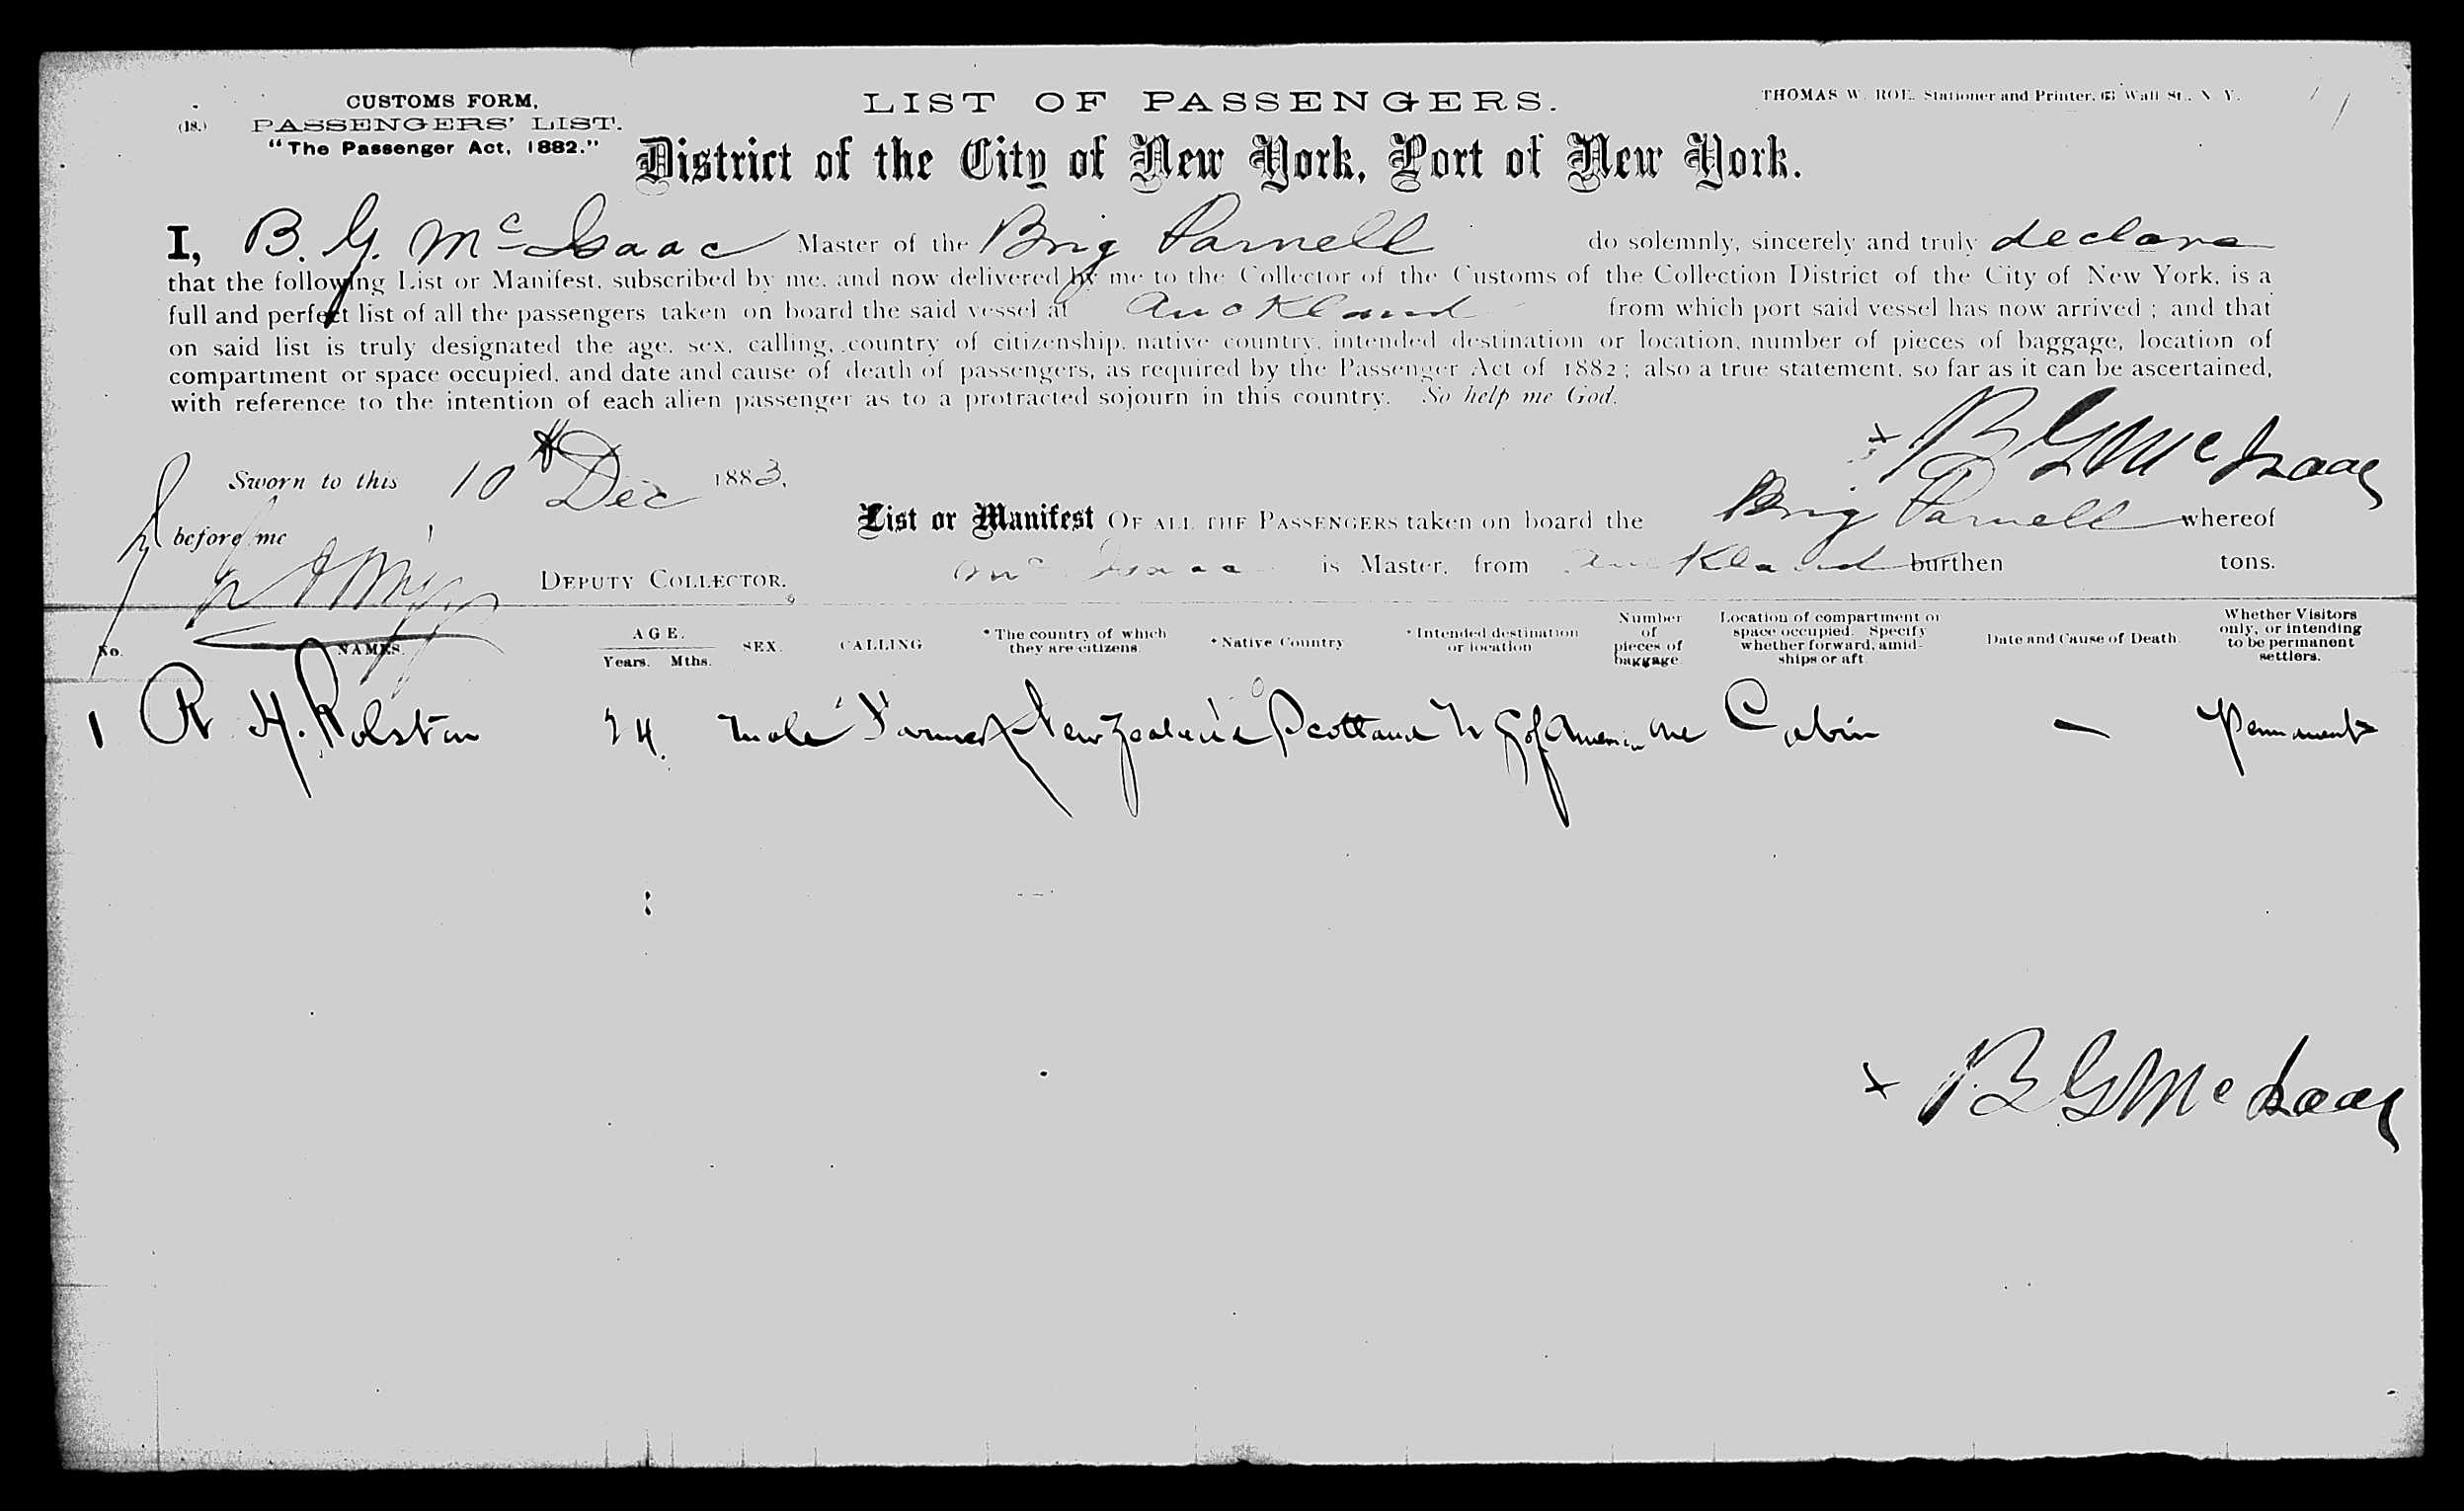 CUSTOMS FORM,
(18.) PASSENGERS' LIST.
"The Passenger Act, 1882."
LIST OF PASSENGERS.
THOMAS W. ROE, Stationer and Printer, 63 Wall St., N. Y.
District of the City of New York, Port of New York.
I, B. G. Mc Isaac Master of the Brig Parnell do solemnly, sincerely and truly declare
that the following List or Manifest, subscribed by me, and now delivered by me to the Collector of the Customs of the Collection District of the City of New York, is a
full and perfect list of all the passengers taken on board the said vessel at Auckland from which port said vessel has now arrived; and that
on said list is truly designated the age, sex, calling, country of citizenship, native country, intended destination or location, number of pieces of baggage, location of
compartment or space occupied, and date and cause of death of passengers, as required by the Passenger Act of 1882; also a true statement, so far as it can be ascertained,
with reference to the intention of each alien passenger as to a protracted sojourn in this country. So help me God.
x B G Mc Isaac
Sworn to this 10th Dec 1883,
before me
DEPUTY COLLECTOR.
List or Manifest OF ALL THE PASSENGERS taken on board the Brig Parnell whereof
Mc Isaac is Master, from Auckland burthen tons.
No. NAMES. AGE. Years. Mths. SEX. CALLING *The country of which they are citizens. *Native Country *Intended destination or location Number of pieces of baggage. Location of compartment or space occupied. Specify whether forward, amidships or aft Date and Cause of Death. Whether Visitors only, or intending to be permanent settlers.
1 R H. Rolston 24. Male Farmer New Zealand Scotland U S of America one Cabin — Permanent
x B G Mc Isaac